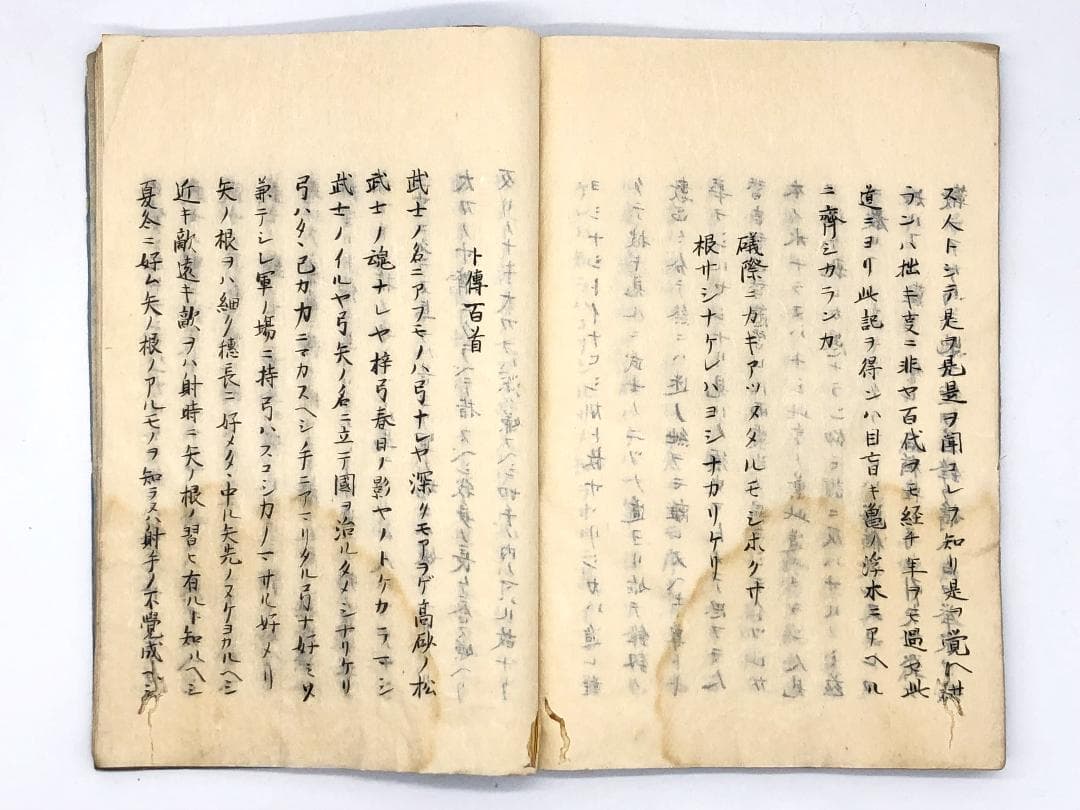 人トシテ是ヲ見是ヲ聞コレヲ知リ是ヲ覚ヘサ
ランハ拙キ支ニ非ヤ百代ヲモ経千年ヲモ過ヤ此
道ニヨリ此記ヲ得ンハ目盲キ亀ノ浮木ニアヘル
ニ齊シカランカ
礒際ニカキアツメタルモシホクサ
根サシナケレハヨシナカリケリ
卜傳百首
武士ノ名ニアフモノハ弓ナレヤ深クモアヲゲ高砂ノ松
武士ノ魂ナレヤ梓弓春日ノ影ヤノトケカラマシ
武士ノイルヤ弓矢ノ名ニ立テ國ヲ治ルタメシナリケリ
弓ハタヽ己カ力ニマカスヘシ手ニアマリタル弓ナ好ミソ
兼テシレ軍ノ場ニ持弓ハスコシ力ノマサル好メリ
矢ノ根ヲハ細ク穗長ニ好メタヽ中ル矢先ノヌケヨカルヘシ
近キ敵遠キ敵ヲハ射時ニ矢ノ根ノ習ヒ有ルト知ルヘシ
夏冬ニ好ム矢ノ根ノアルモノヲ知ラヌハ射手ノ不覺成